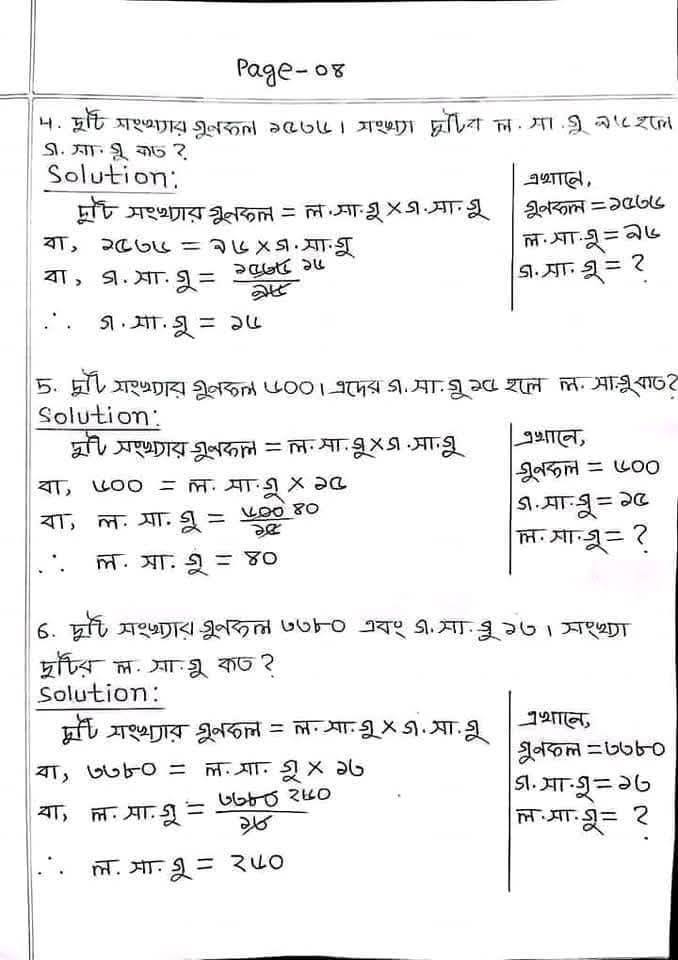 Page-০৪
4. দুটি সংখ্যার গুনফল ১৫৩৬। সংখ্যা দুটির ল. সা. গু ৯৬ হলে
গ. সা. গু কত?
Solution:
দুটি সংখ্যার গুনফল = ল. সা. গু × গ. সা. গু
বা, ১৫৩৬ = ৯৬ × গ. সা. গু
বা, গ. সা. গু = ১৫৩৬ ১৬
৯৬
∴ গ. সা. গু = ১৬
এখানে,
গুনফল = ১৫৩৬
ল. সা. গু = ৯৬
গ. সা. গু = ?
5. দুটি সংখ্যার গুনফল ৬০০। এদের গ. সা. গু ১৫ হলে ল. সা. গু কত?
Solution:
দুটি সংখ্যার গুনফল = ল. সা. গু × গ. সা. গু
বা, ৬০০ = ল. সা. গু × ১৫
বা, ল. সা. গু = ৬০০ ৪০
১৫
∴ ল. সা. গু = ৪০
এখানে,
গুনফল = ৬০০
গ. সা. গু = ১৫
ল. সা. গু = ?
6. দুটি সংখ্যার গুনফল ৩৩৮০ এবং গ. সা. গু ১৩। সংখ্যা
দুটির ল. সা. গু কত?
Solution:
দুটি সংখ্যার গুনফল = ল. সা. গু × গ. সা. গু
বা, ৩৩৮০ = ল. সা. গু × ১৩
বা, ল. সা. গু = ৩৩৮০ ২৬০
১৩
∴ ল. সা. গু = ২৬০
এখানে,
গুনফল = ৩৩৮০
গ. সা. গু = ১৩
ল. সা. গু = ?